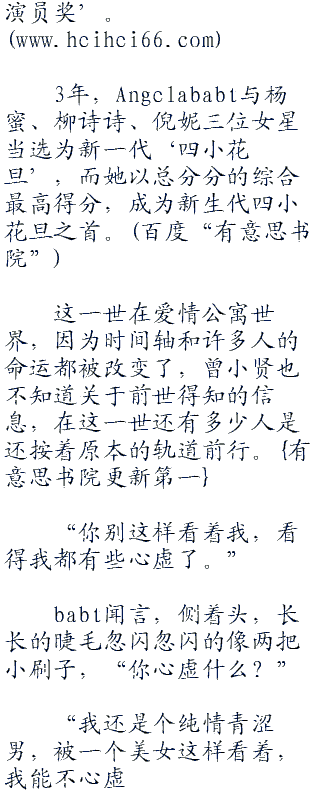 演员奖’。
(www.hcihci66.com)
3年，Angclababt与杨
蜜、柳诗诗、倪妮三位女星
当选为新一代‘四小花
旦’，而她以总分分的综合
最高得分，成为新生代四小
花旦之首。(百度“有意思书
院”)
这一世在爱情公寓世
界，因为时间轴和许多人的
命运都被改变了，曾小贤也
不知道关于前世得知的信
息，在这一世还有多少人是
还按着原本的轨道前行。{有
意思书院更新第一}
“你别这样看着我，看
得我都有些心虚了。”
babt闻言，侧着头，长
长的睫毛忽闪忽闪的像两把
小刷子，“你心虚什么？”
“我还是个纯情青涩
男，被一个美女这样看着，
我能不心虚